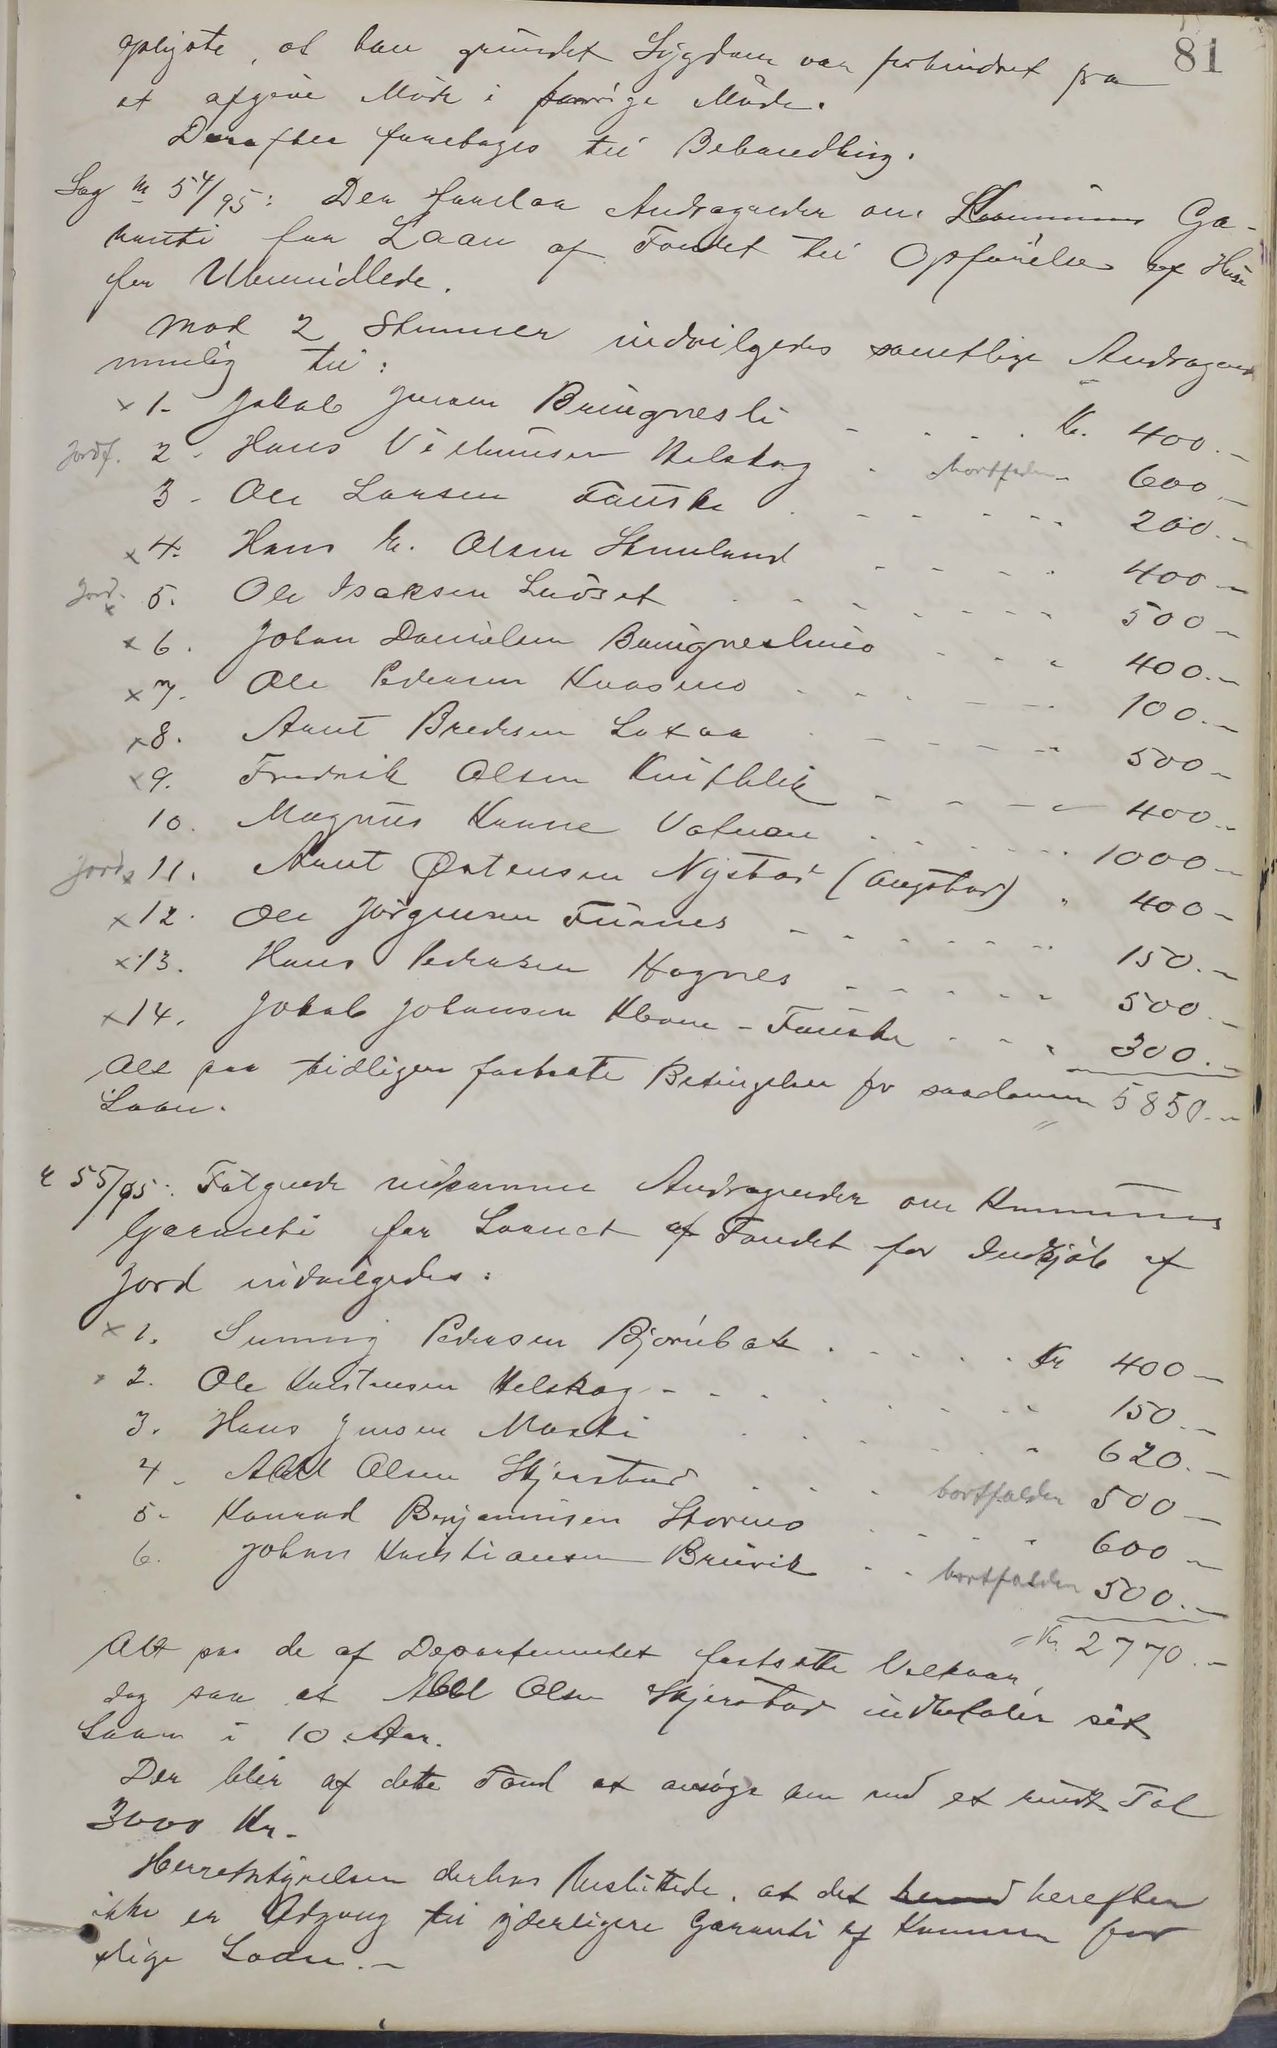 81
oplyste, at han grundet Sygdom var forhindret fra
at afgive Møde i forrige Møde.
Derefter foretages til Behandling.
Sag № 54/95: Der forelaa Andragender om Kommunens Ga-
ranti for Laan af Fondet til Opførelse af Huse
for Ubemidlede.
Mod 2 Stemmer indvilgedes samtlige Andragender
nemlig til:
× 1. Jakob Jensen Bringsli - - - Kr. 400.-
Jordf. 2. Hans Vilhumsen Helskog - bortfalden - 600.-
3. Ole Larsen Fauske - - - - 200.-
× 4. Hans M. Olsen Stemland - - - - 400.-
Jord. × 5. Ole Isaksen Leivset - - - - 500.-
× 6. Johan Danielsen - - - 400.-
× 7. Ole Pedersen Kvasmo - - - - 100.-
× 8. Arnt Bredesen Laxaa - - - - 500.-
× 9. Fredrik Olsen - - - 400.-
10. Magnus Vatnan - - - - 1000.-
Jord × 11. Arnt Østensen Nystad (Øystad) " 400.-
× 12. Ole Jørgensen Finnes - - - - 150.-
× 13. Hans Pedersen Hagnes - - - - 500.-
× 14. Jakob Johansen - Fauske - - - 300.-
Alt paa tidligere fastsatte Betingelser for saadanne 5850.-
Laan.
№ 55/95: Følgende indkomne Andragender om Kommunens
Garanti for Laanet af Fondet for Indkjøb af
Jord indvilgedes:
× 1. Pedersen Bjørnbak - - - - Kr 400.-
× 2. Ole Kristensen Helskog - - - - 150.-
3. Hans Jensen Moski - - - - 620.-
4. Abel Olsen Skjerstad - - - bortfalden 500.-
5. Konrad Benjaminsen Stormo - - - - 600.-
6. Johan Kristiansen Brúvik - - bortfalden 500.-
Kr. 2770.-
Alt paa de af Departementet fastsatte Vilkaar,
dog saa at Abel Olsen Skjerstad indbetaler sit
Laan i 10 Aar.
Der blir af dette Fond at ansøge om med et rundt Tal
3000 Kr.
Herredstyrelsen derhos besluttede, at det herefter
ikke er Adgang til yderligere Garanti af Kommunen for
slige Laan.-